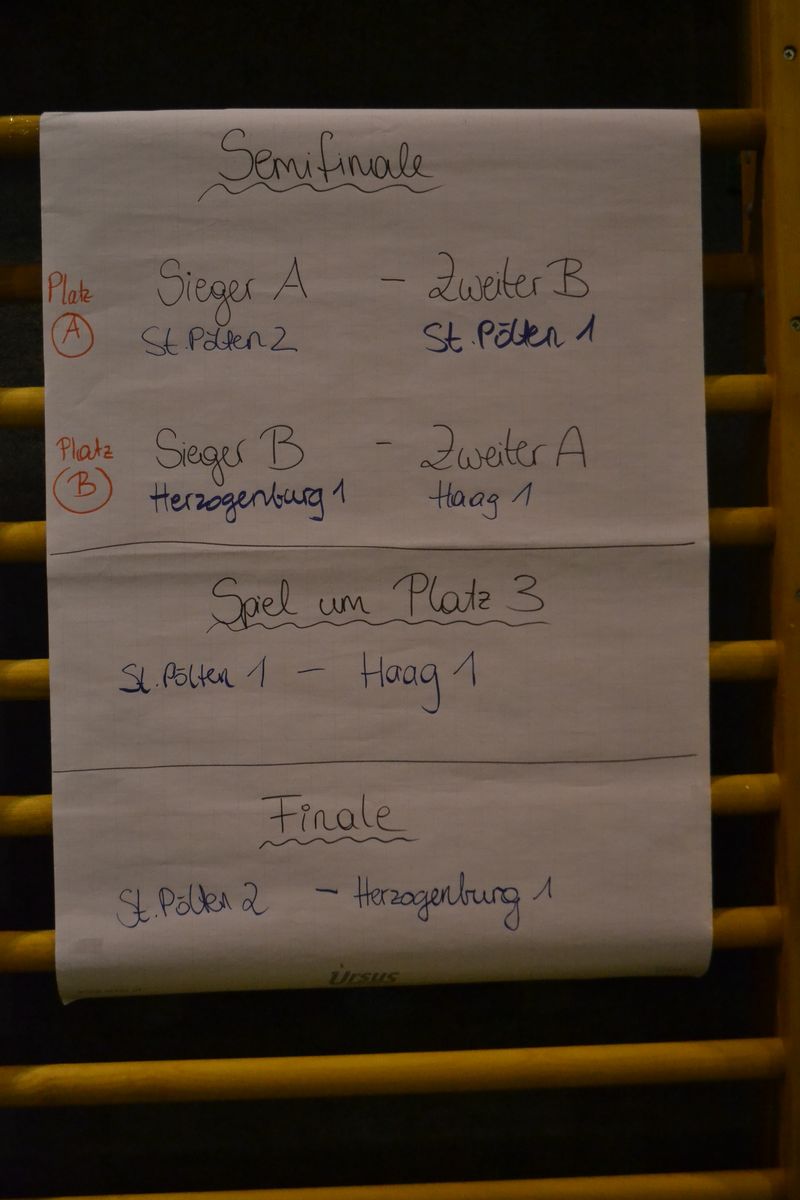 Semifinale
Platz Sieger A - Zweiter B
A St. Pölten 2 St. Pölten 1
Platz Sieger B - Zweiter A
B Herzogenburg 1 Haag 1
Spiel um Platz 3
St. Pölten 1 - Haag 1
Finale
St. Pölten 2 - Herzogenburg 1
Ursus